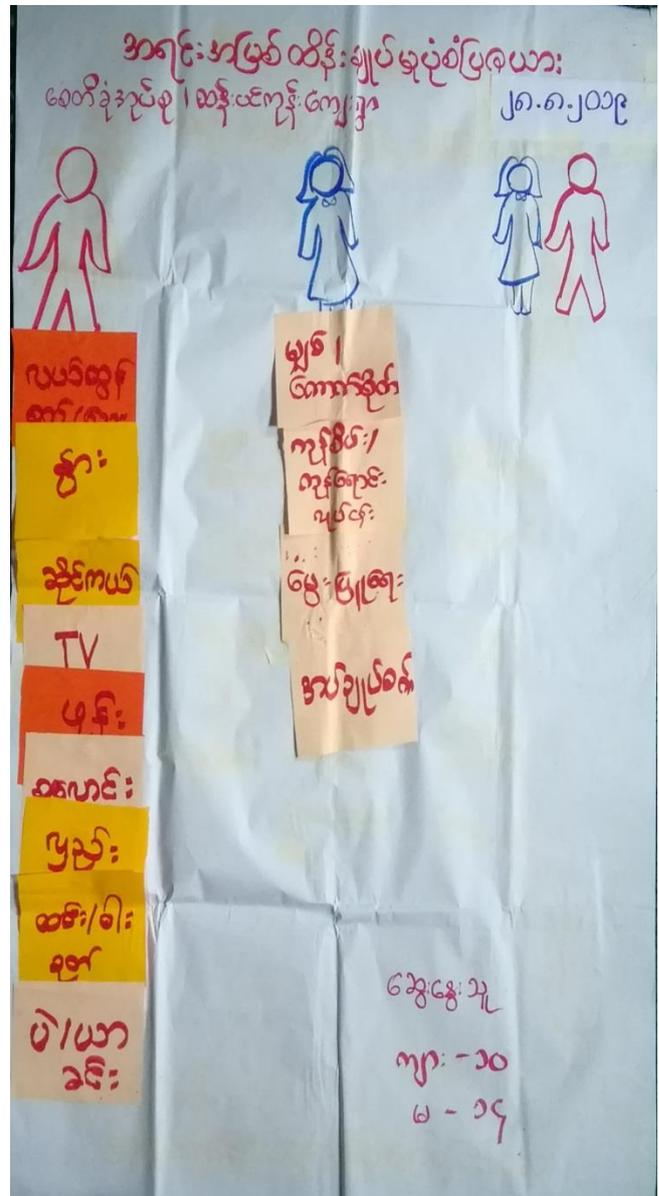 အရင်းအမြစ်ထိန်းချုပ်မှုပုံစံပြဇယား
စေတီခုံအုပ်စု ၊ ဆန်းပင်ကုန်းကျေးရွာ
၂၈.၈.၂၀၁၉
နွား
ဆိုင်ကယ်
TV
ဖုန်း
ဆလောင်း
လှည်း
ထမ်း/ဓါး
ခုတ်
ပဲ/ယာ
ခင်း
မျှစ် ၊
ကောက်စိုက်
ကုန်စိမ်း/
ကုန်ရောင်း
လုပ်ငန်း
မွေးမြူရေး
အပ်ချုပ်စက်
ဆွေးနွေးသူ
ကျား - ၁၀
မ - ၁၄